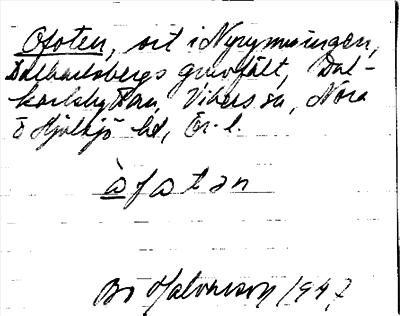 Ofoten, ort i Nyrymningen,
Dalkarlsbergs gruvfält, Dal-
karlshyttan, Vikers sn, Nora
o Hjulsjö bd, Ör. l.
àfatən
Bo Halvarsson 1947